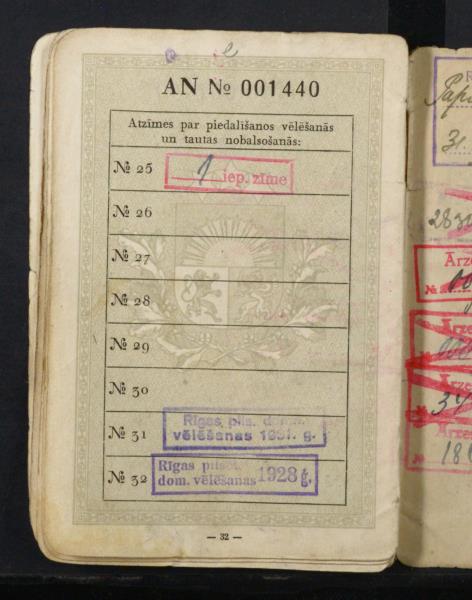 AN № 001440
Atzīmes par piedalīšanos vēlēšanās
un tautas nobalsošanās:
№ 25
1 iep. zīme
№ 26
№ 27
№ 28
№ 29
№ 30
№ 31
Rīgas pils. dom.
vēlēšanas 1931. g.
№ 32
Rīgas pilsēt.
dom. vēlēšanas 1928 g.
— 32 —
31.
2830
Ārze
№
Ārze
Ārze
34
Ārze
№ 18